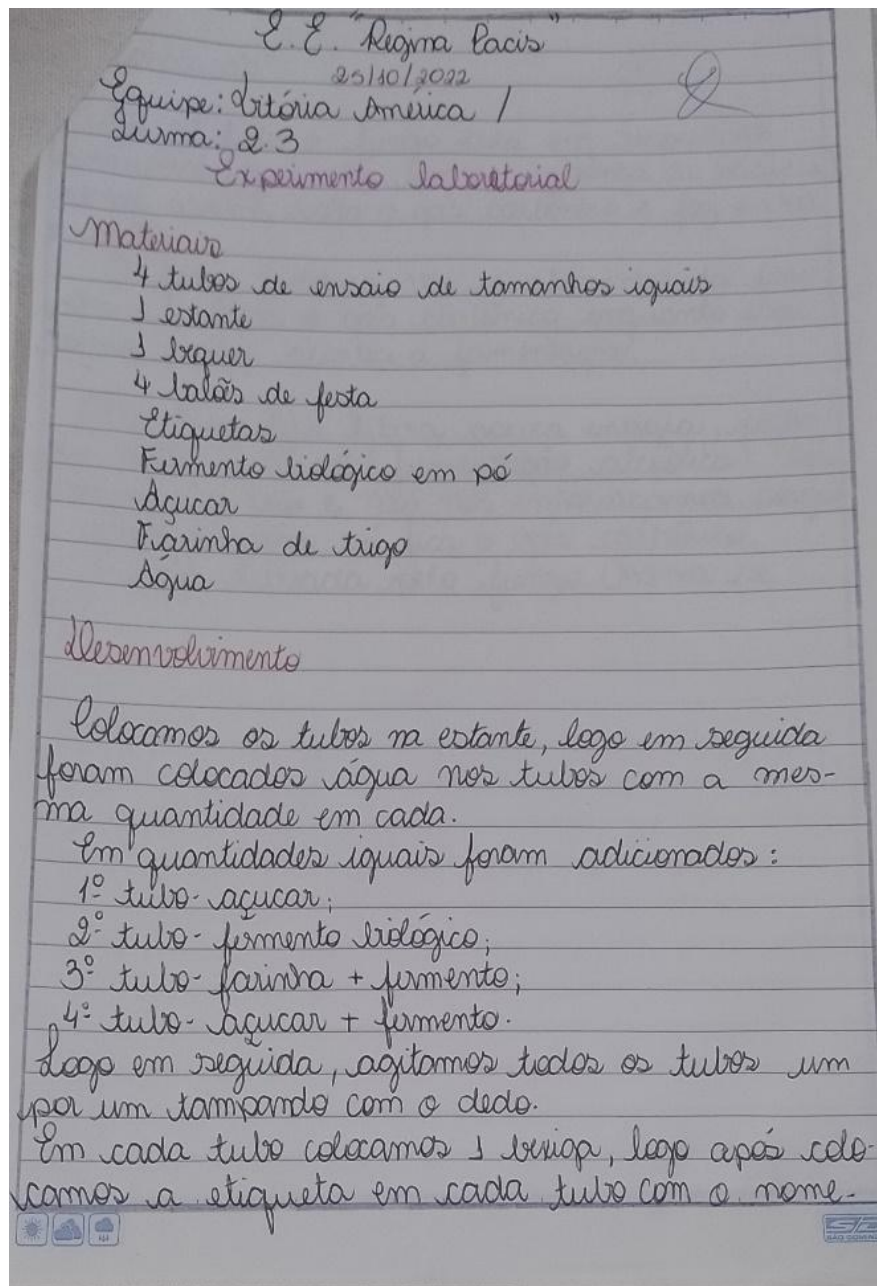 E.E. "Regina Pacis"
25/10/2022
Equipe: Vitória América /
Turma: 2.3
Experimento laboratorial
Materiais
4 tubos de ensaio de tamanhos iguais
1 estante
1 béquer
4 balãos de festa
Etiquetas
Fermento biológico em pó
Açucar
Farinha de trigo
Água
Desenvolvimento
Colocamos os tubos na estante, logo em seguida
foram colocados água nos tubos com a mes-
ma quantidade em cada.
Em quantidades iguais foram adicionados:
1º tubo- açucar;
2º tubo- fermento biológico;
3º tubo- farinha + fermento;
4º tubo- açucar + fermento.
Logo em seguida, agitamos todos os tubos um
por um tampando com o dedo.
Em cada tubo colocamos 1 bexiga, logo após colo-
camos a etiqueta em cada tubo com o nome.